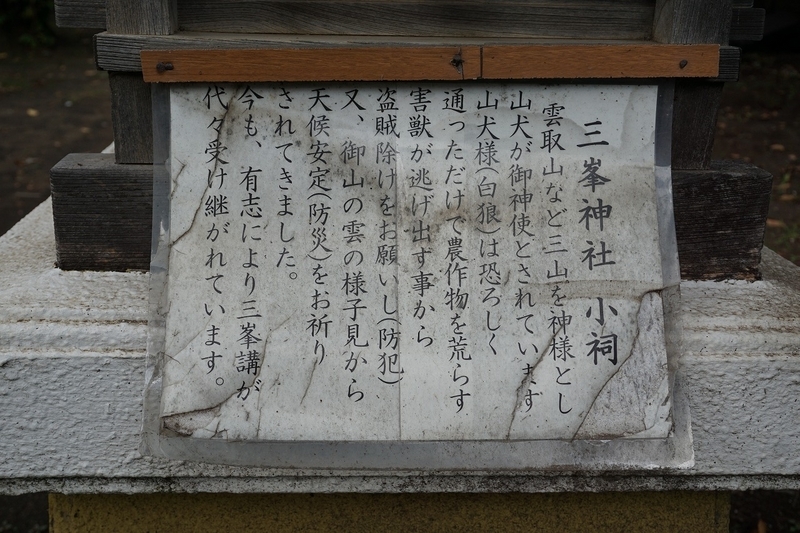 三峯神社 小祠
雲取山など三山を神様とし
山犬が御神使とされています
山犬様(白狼)は恐ろしく
通っただけで農作物を荒らす
害獣が逃げ出す事から
盗賊除けをお願いし(防犯)
又、御山の雲の様子見から
天候安定(防災)をお祈り
されてきました。
今も、有志により三峯講が
代々受け継がれています。